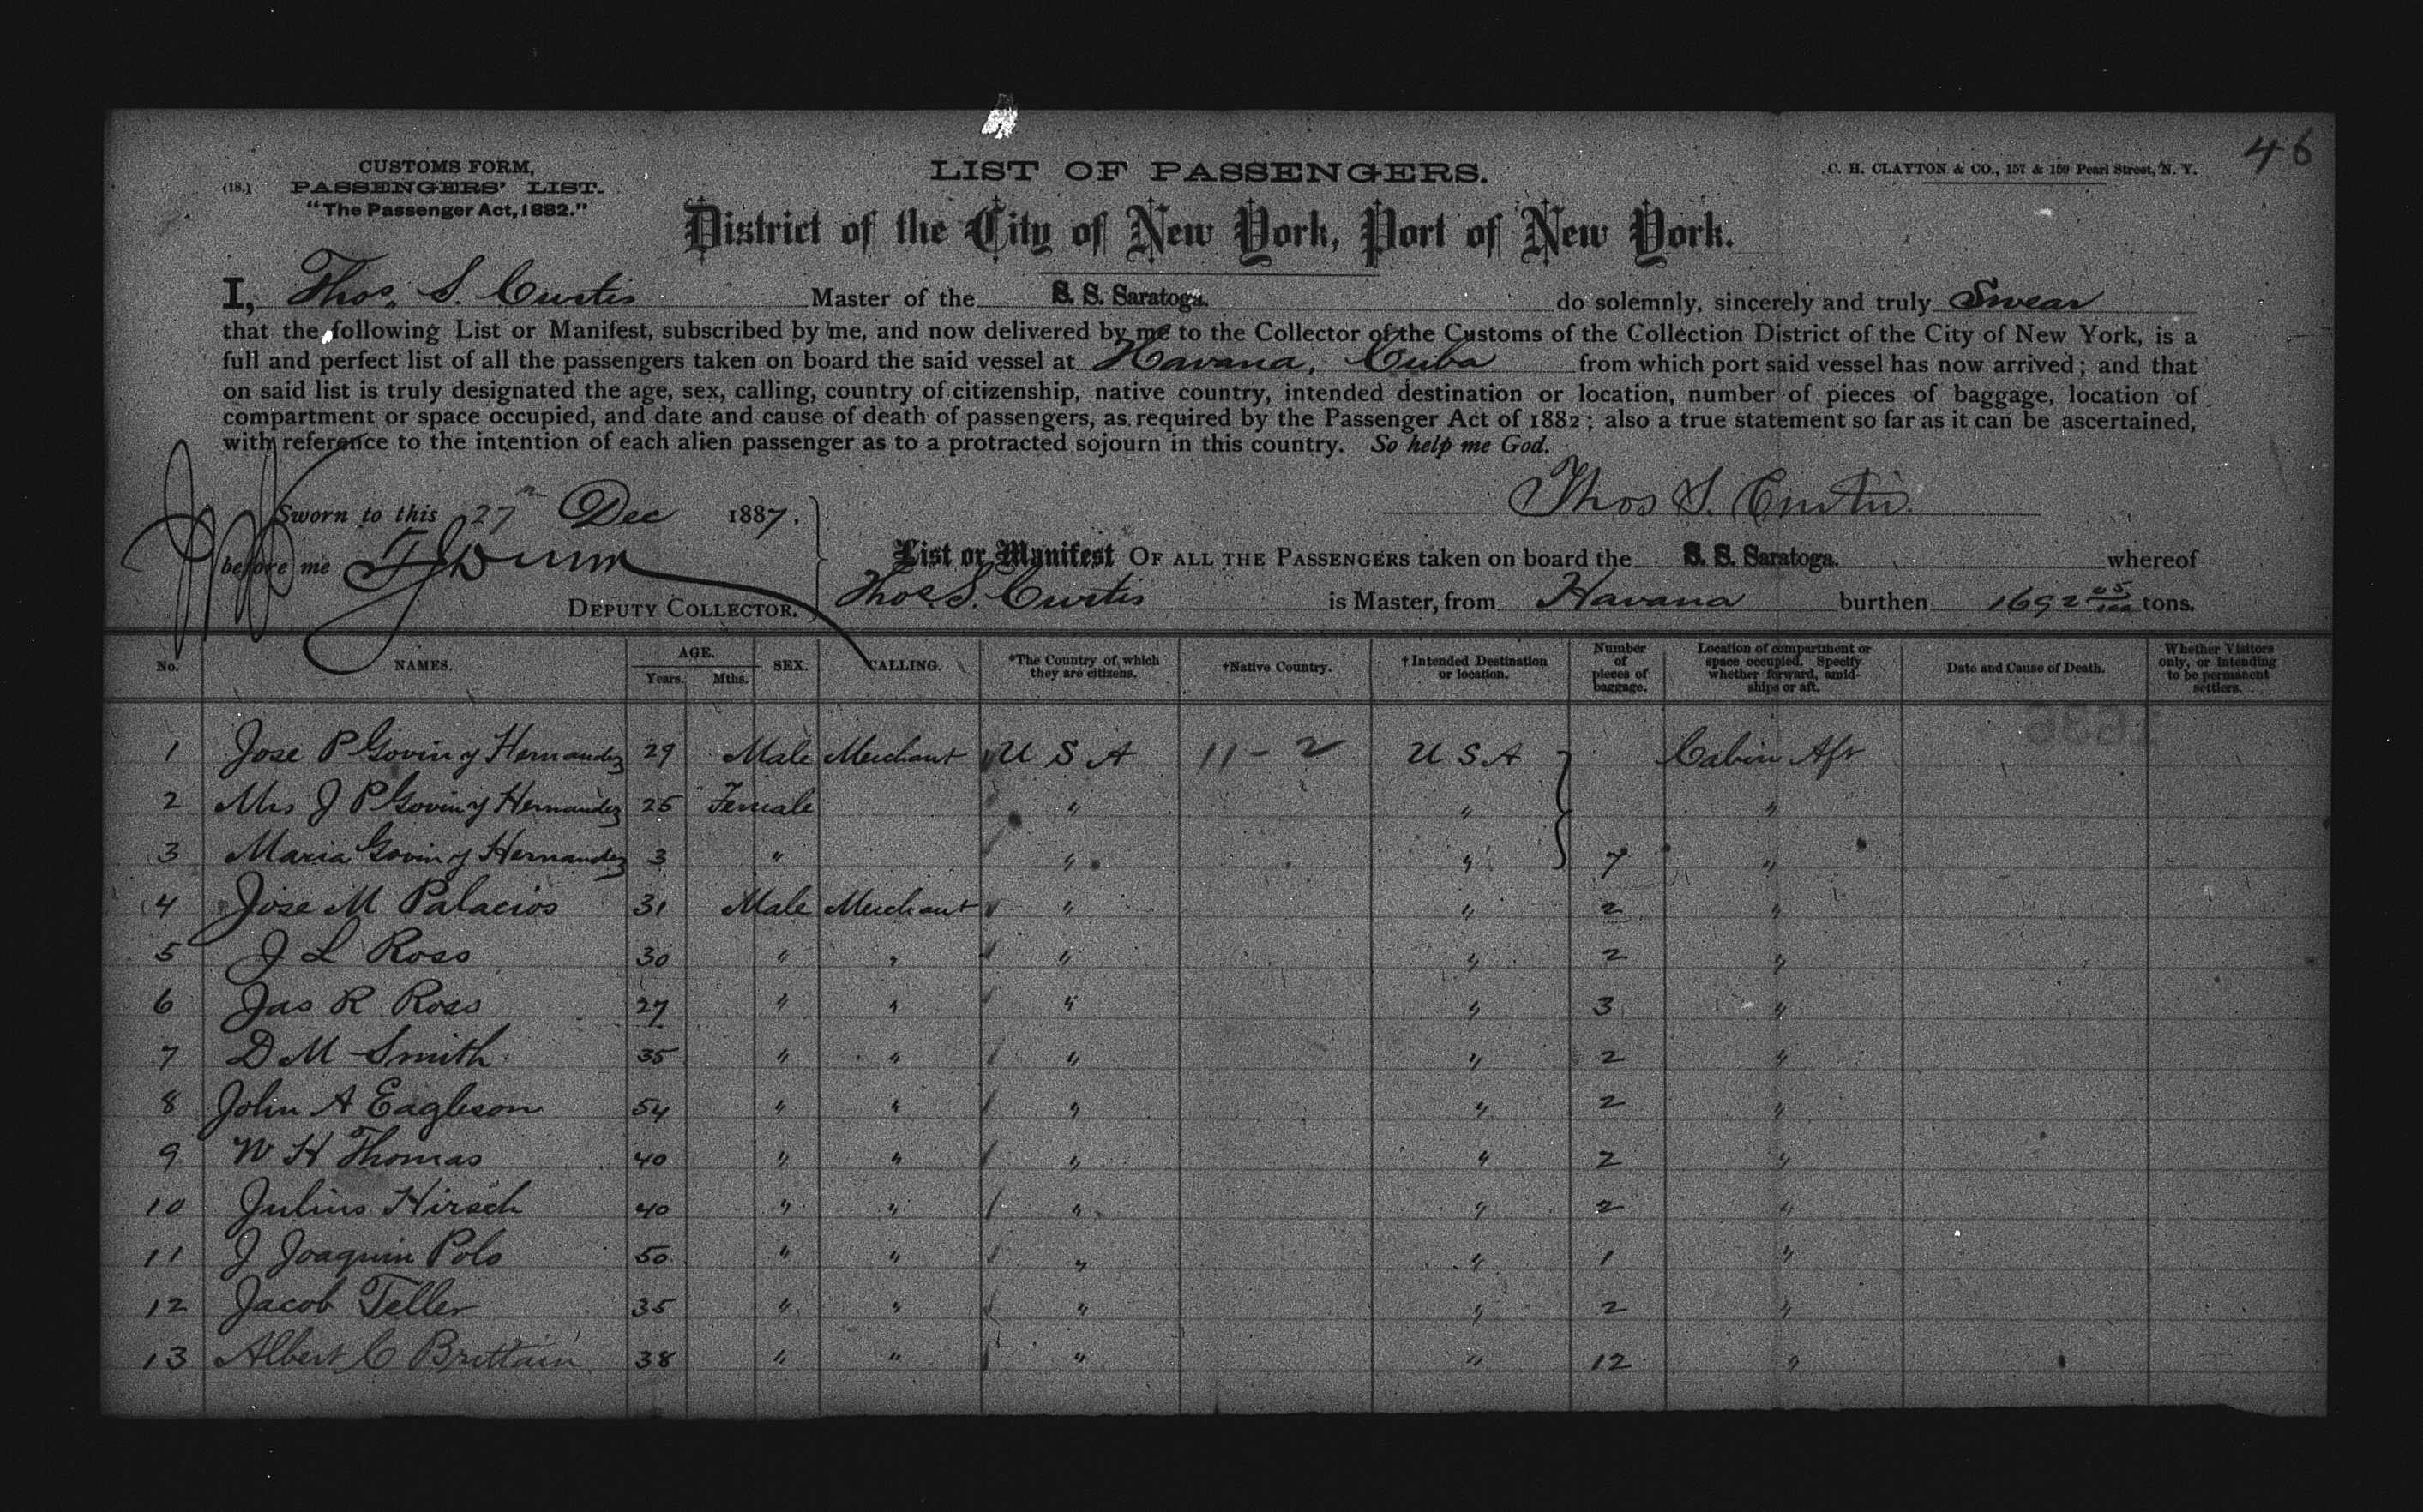 46
CUSTOMS FORM,
(18.) PASSENGERS' LIST.
"The Passenger Act, 1882."
LIST OF PASSENGERS.
C. H. CLAYTON & CO., 157 & 159 Pearl Street, N. Y.
District of the City of New York, Port of New York.
I, Thos. S. Curtis Master of the S. S. Saratoga. do solemnly, sincerely and truly Swear
that the following List or Manifest, subscribed by me, and now delivered by me to the Collector of the Customs of the Collection District of the City of New York, is a
full and perfect list of all the passengers taken on board the said vessel at Havana, Cuba from which port said vessel has now arrived; and that
on said list is truly designated the age, sex, calling, country of citizenship, native country, intended destination or location, number of pieces of baggage, location of
compartment or space occupied, and date and cause of death of passengers, as required by the Passenger Act of 1882; also a true statement so far as it can be ascertained,
with reference to the intention of each alien passenger as to a protracted sojourn in this country. So help me God.
Thos S. Curtis
Sworn to this 27 Dec 1887.
before me
DEPUTY COLLECTOR.
List or Manifest OF ALL THE PASSENGERS taken on board the S. S. Saratoga. whereof
Thos. S. Curtis is Master, from Havana burthen 1692 05/100 tons.
No. NAMES. AGE. Years. Mths. SEX. CALLING. *The Country of which they are citizens. †Native Country. †Intended Destination or location. Number of pieces of baggage. Location of compartment or space occupied. Specify whether forward, amidships or aft. Date and Cause of Death. Whether Visitors only, or intending to be permanent settlers.
1 Jose P Govin y Hernandez 29 Male Merchant U S A 11-2 U S A Cabin Aft
2 Mrs J P Govin y Hernandez 25 Female " " "
3 Maria Govin y Hernandez 3 " " " 7 "
4 Jose M Palacios 31 Male Merchant " " 2 "
5 J L Ross 30 " " " " 2 "
6 Jas R Ross 27 " " " " 3 "
7 D M Smith 35 " " " " 2 "
8 John A Eagleson 54 " " " " 2 "
9 W H Thomas 40 " " " " 2 "
10 Julius Hirsch 40 " " " " 2 "
11 J Joaquin Polo 50 " " " " 1 "
12 Jacob Teller 35 " " " " 2 "
13 Albert C Brittain 38 " " " " 12 "